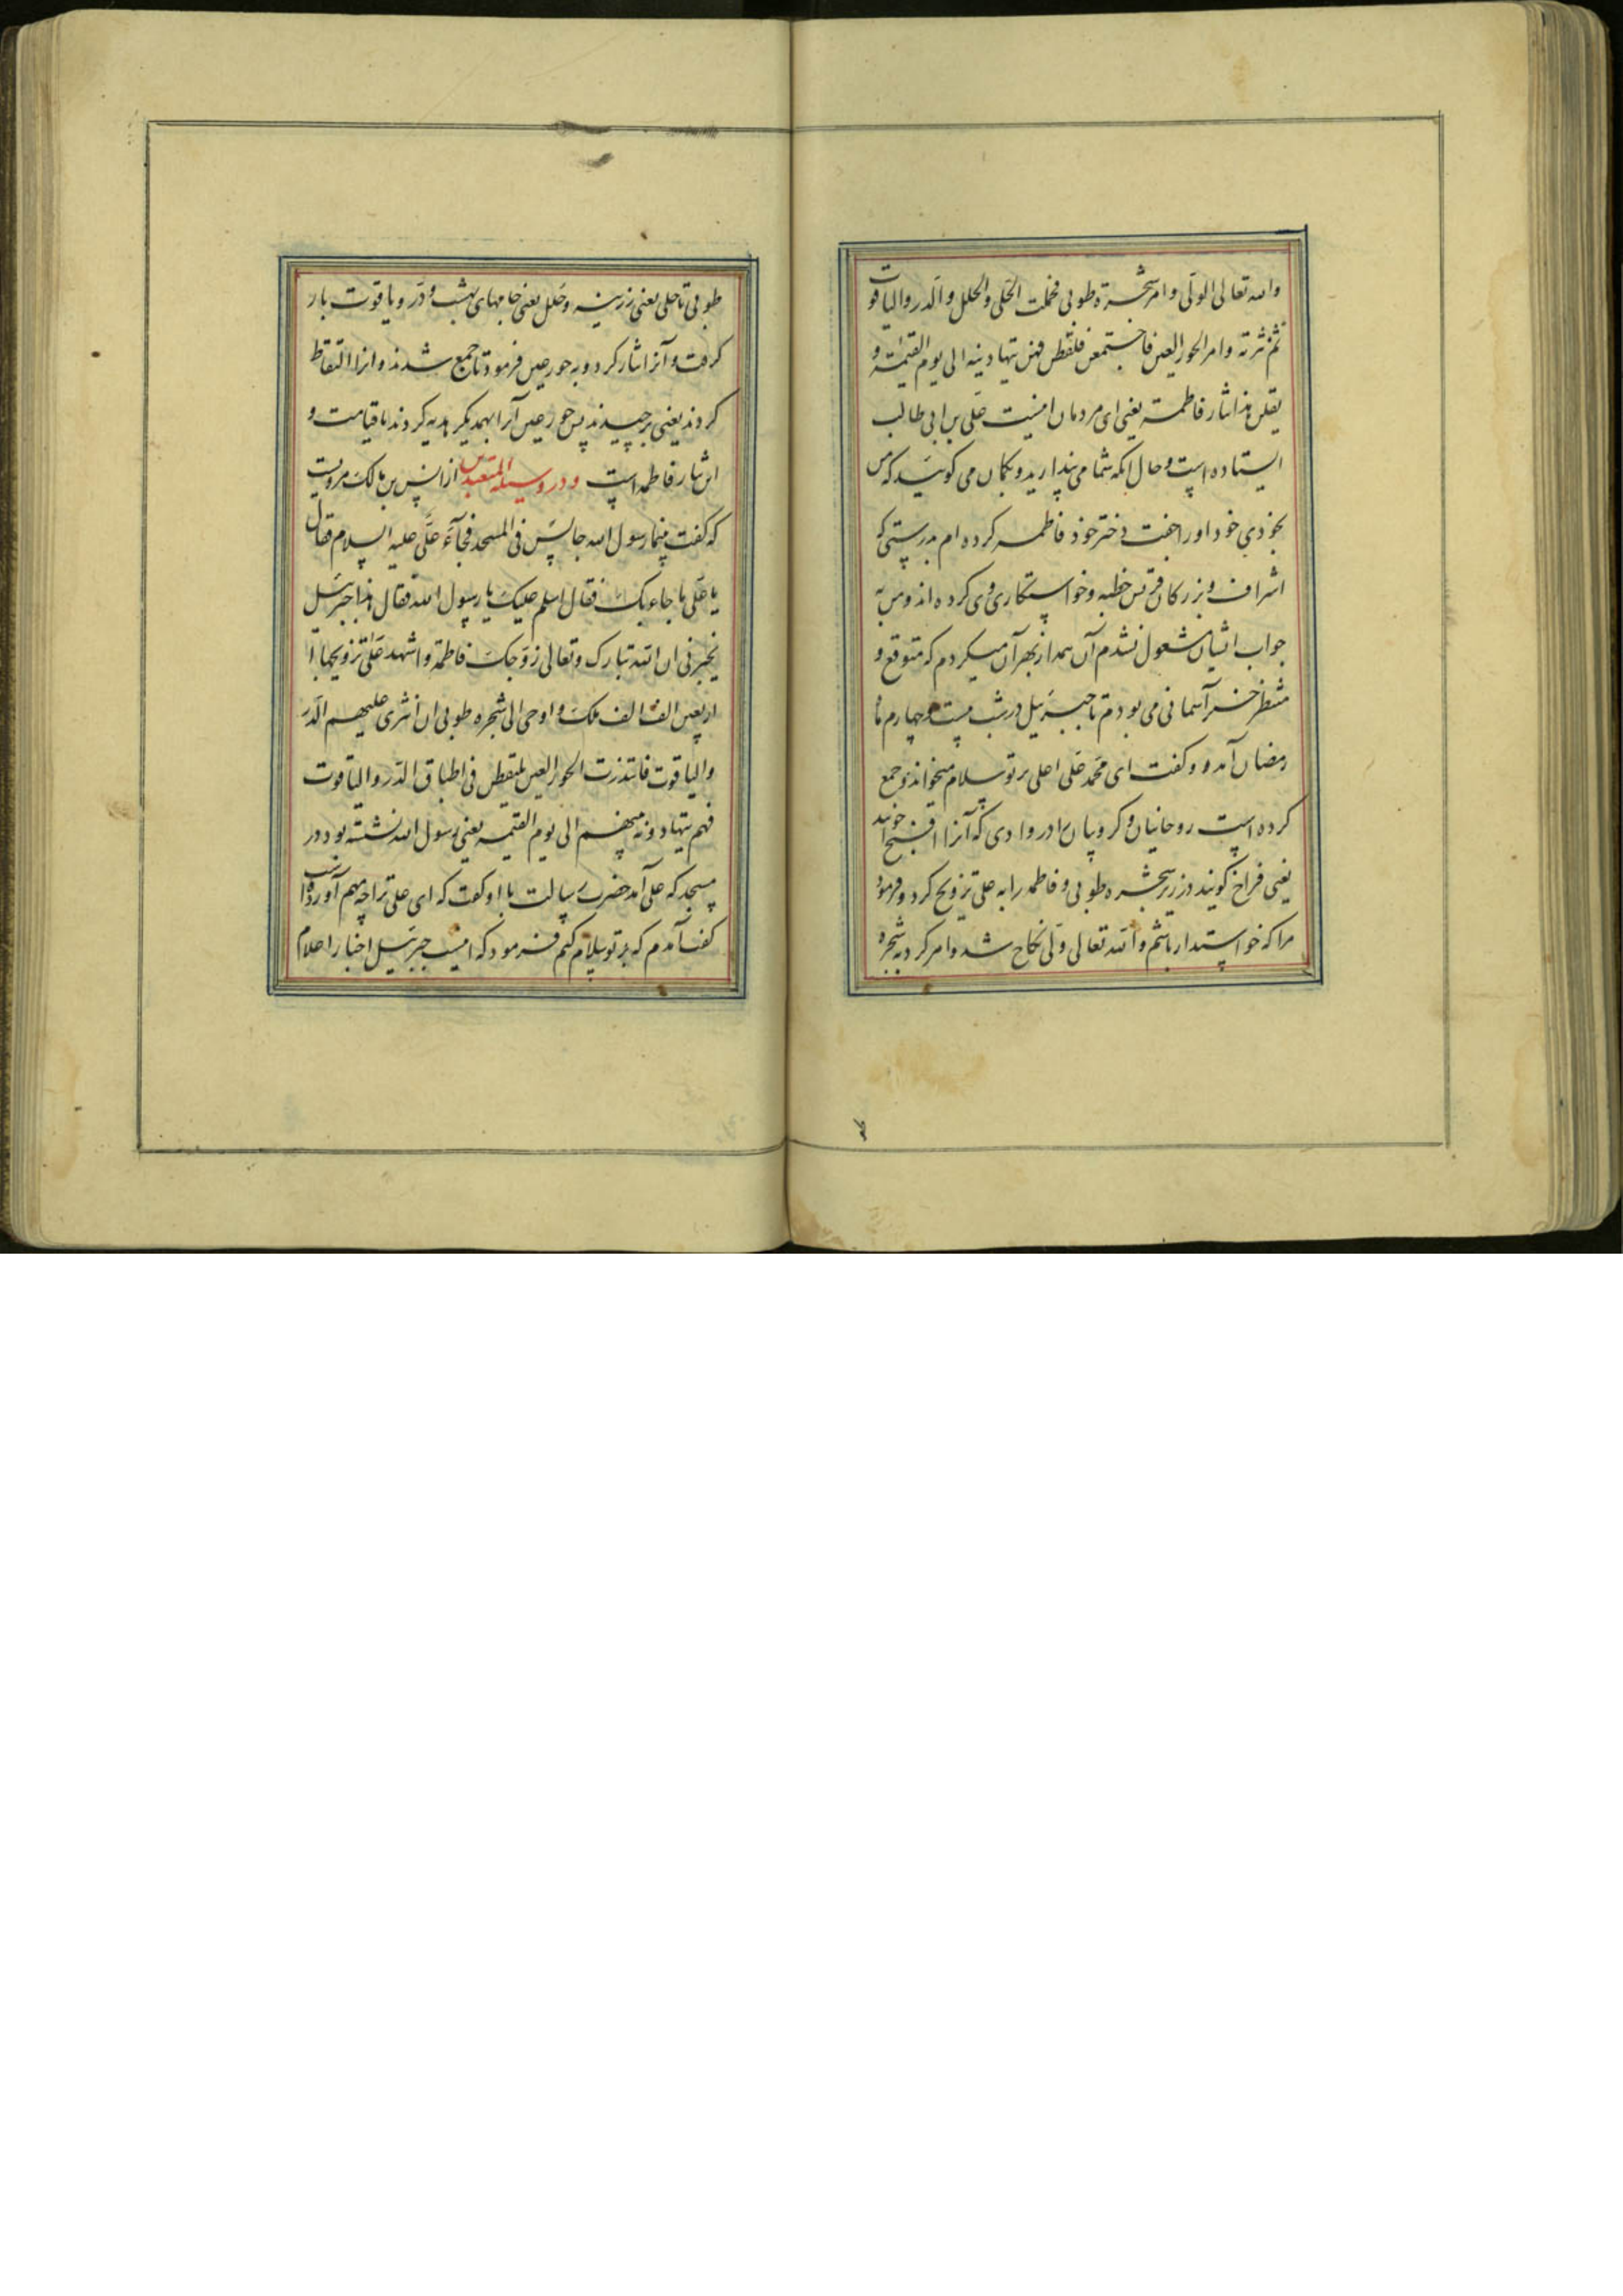 والله تعالی الولی و امر شجرة طوبی فحملت الحلی والحلل والدر والیاقوت
ثم نثرته وامر الحور العین فاجتمعن فلقطن فهن یتهادینه الی یوم القیمة و
یقلن هذا نثار فاطمة یعنی ای مردمان اینست علی بن ابی طالب
ایستاده است و حال آنکه شما می پندارید و گمان می کوئید که من
بخودی خود او را جفت دختر خود فاطمه کرده ام بدرستی که
اشراف و بزرکان قریش خطبه و خواستکاری وی کرده اند و من به
جواب ایشان مشغول نشدم آن همه از بهر آن میکردم که متوقع و
منتظر خبر آسمانی می بودم تا جبرئیل در شب بیست و چهارم ماه
رمضان آمد و کفت ای محمد علی اعلی بر تو سلام میخواند و جمع
کرده است روحانیان و کروبیان را در وادی که آنرا افیح خوانند
یعنی فراخ کویند در زیر شجره طوبی و فاطمه را به علی تزویج کرد و فرمود
مرا که خواستدار باشم والله تعالی ولی نکاح شد و امر کرد به شجره
طوبی تا حلی یعنی زرینه و حلل یعنی جامهای بهشت و در و یاقوت بار
کرفت و آنرا نثار کرد و به حور عین فرمود تا جمع شدند و انرا التقاط
کردند یعنی برچیدند پس حور عین آنرا بهمدیکر هدیه کردند تا قیامت و
این نثار فاطمه است و در وسیلة المتعبدین از انس بن مالک مرویست
که کفت بینما رسول الله جالس فی المسجد فجآء علی علیه السلام فقال
یا علی ما جاء بک فقال اسلم علیک یا رسول الله فقال هذا جبرئیل
یخبرنی ان الله تبارک وتعالی زوجک فاطمة واشهد علی تزویجها
اربعین الف الف ملک و اوحی الی شجره طوبی ان انثری علیهم الدر
والیاقوت فابتدرت الحور العین یلتقطن فی اطباق الدر والیاقوت
فهم یتهادونه بینهم الی یوم القیمة یعنی رسول الله نشسته بود در
مسجد که علی آمد حضرت رسالت با او کفت که ای علی ترا چه مهم آورده است
کفت آمدم که بر تو سلام کنم فرمود که اینست جبرئیل اخبار و اعلام